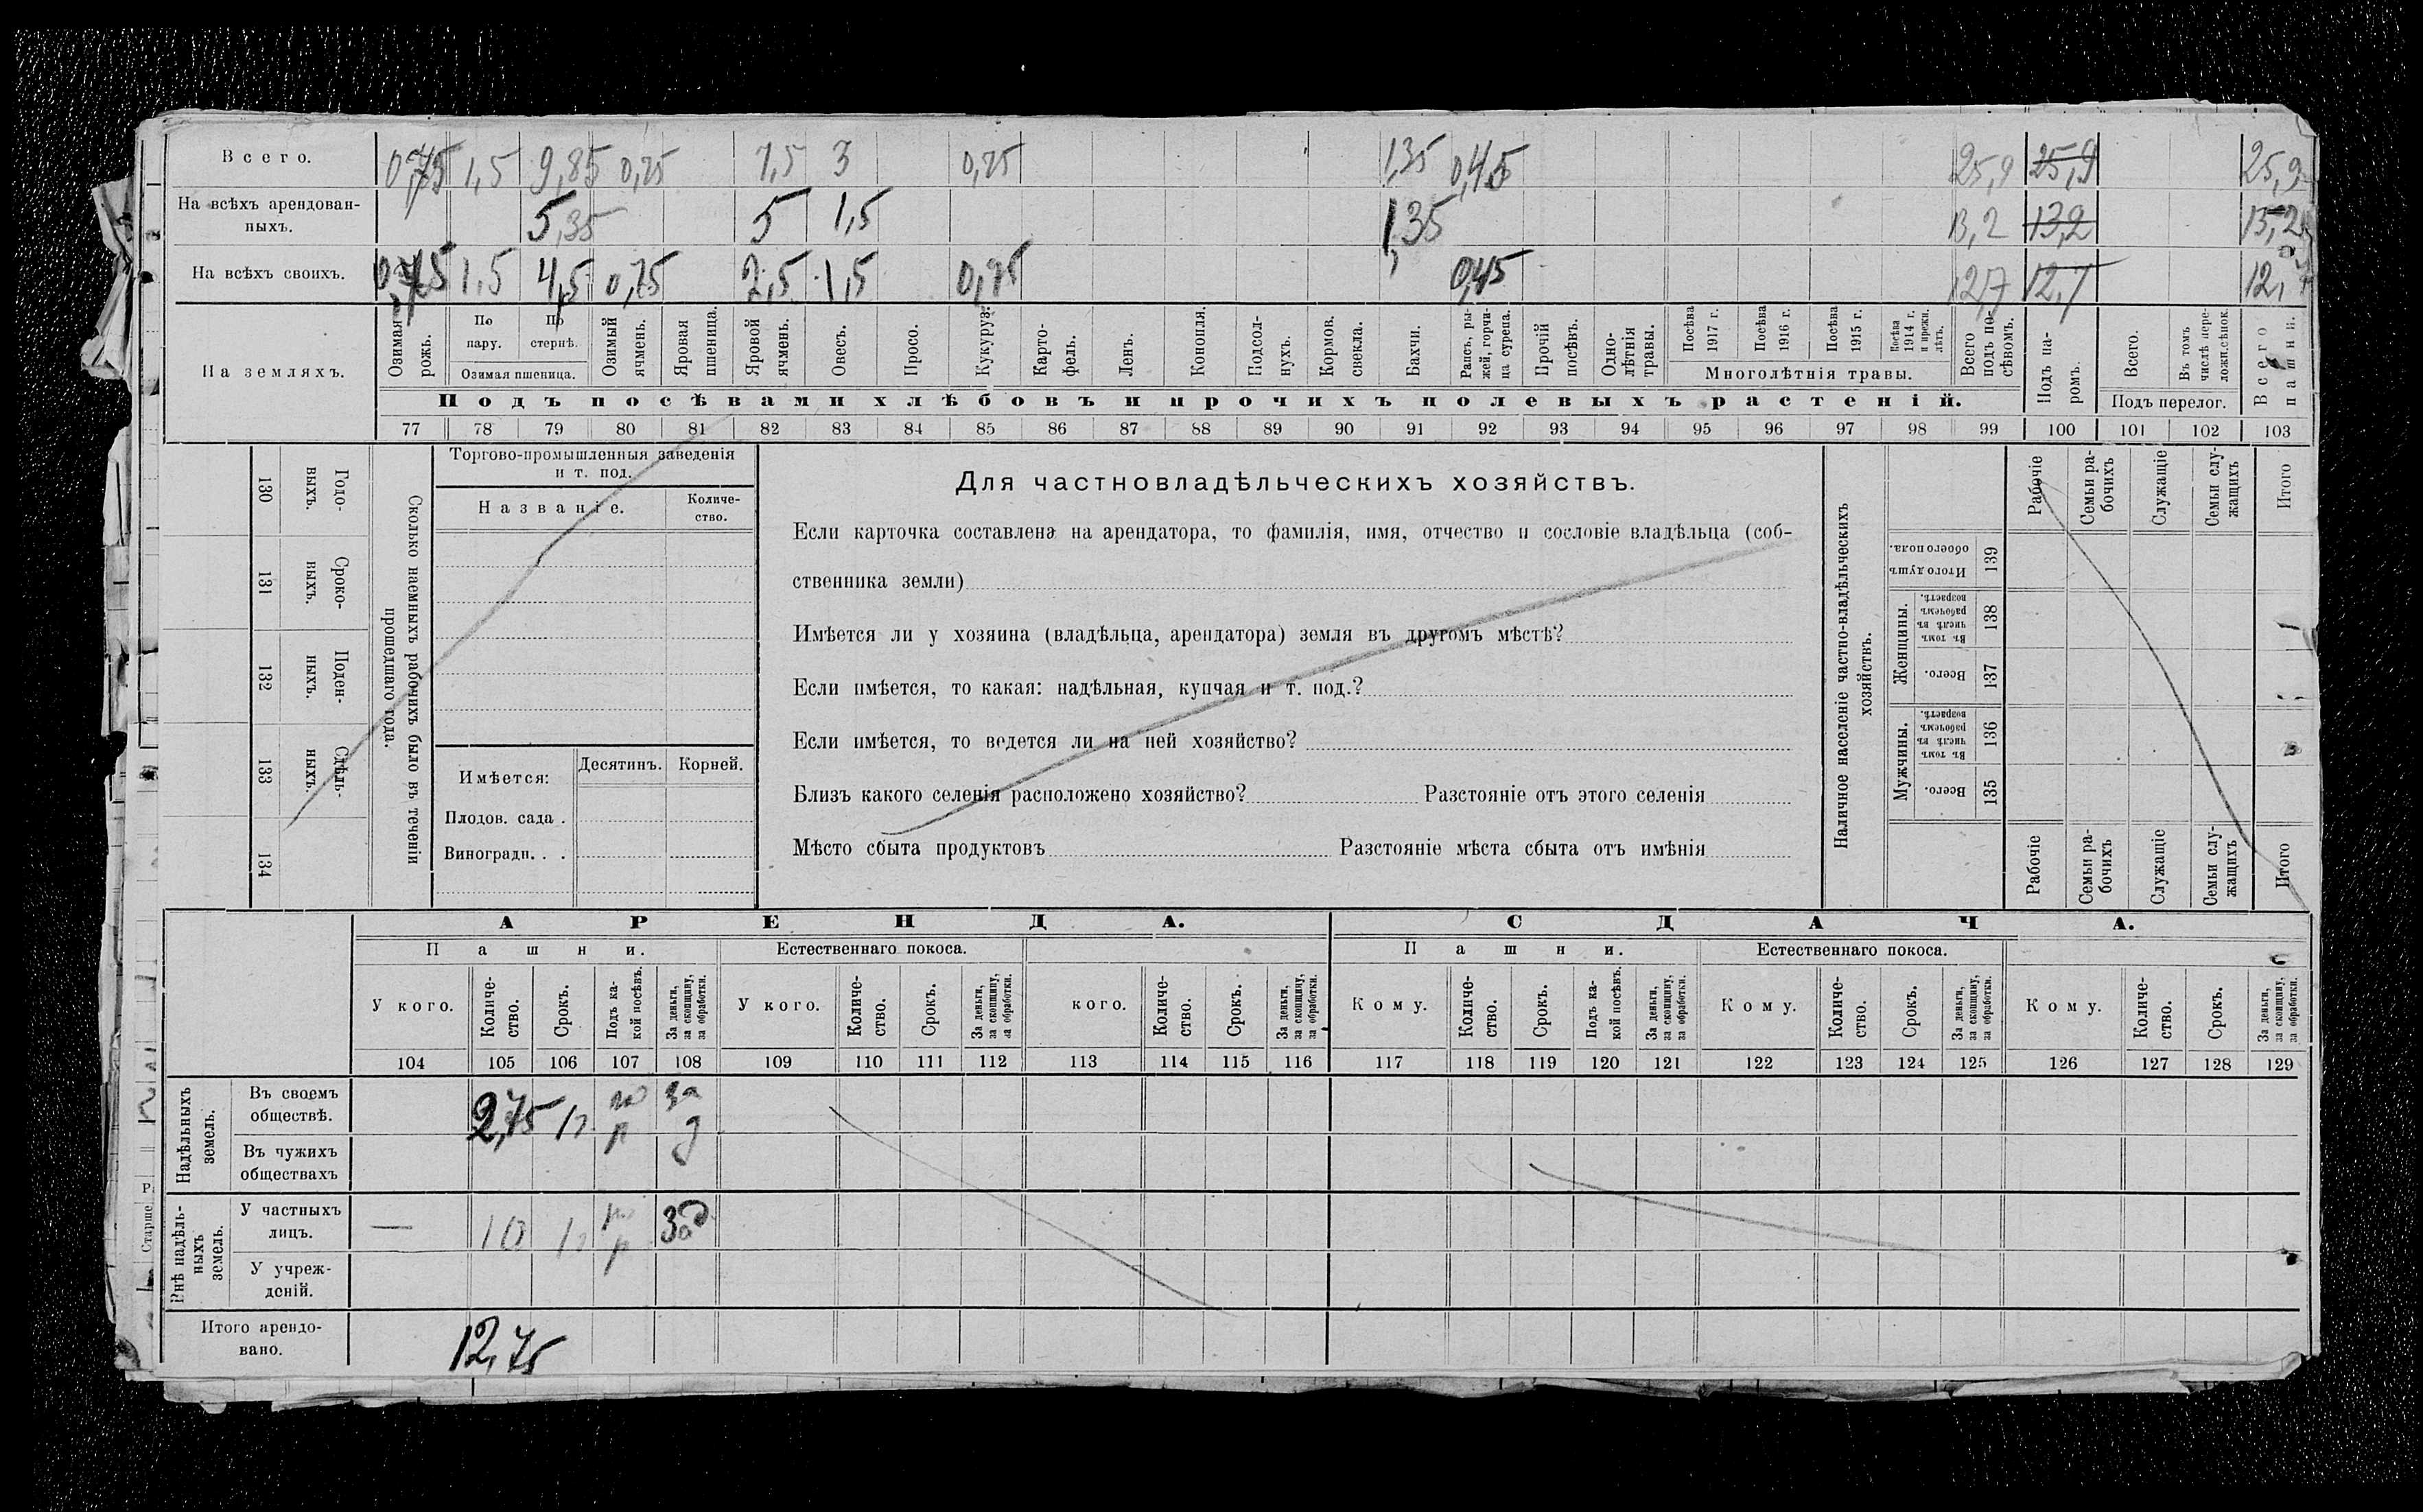 Всего. 0,75 1,5 9,85 0,75 7,5 3 0,75 1,35 0,45 25,9 25,9 25,9
На всѣхъ арендован-
ныхъ. 5,35 5 1,5 1,35 13,2 13,2
На всѣхъ своихъ. 0,75 1,5 4,5 0,75 2,5 1,5 0,75 0,45 12,7 12,7
На земляхъ.
Озимая рожь.
По пару.
По стернѣ.
Озимая пшеница.
Озимый ячмень.
Яровая пшеница.
Яровой ячмень.
Овесъ.
Просо.
Кукуруз.
Карто-
фель.
Ленъ.
Конопля.
Подсол-
нухъ.
Кормов. свекла.
Бахчи.
Рапсъ, ры-
жей, горчи-
ца сурепа.
Прочій посѣвъ.
Одно-
лѣтнія травы.
Посѣва 1917 г.
Посѣва 1916 г.
Посѣва 1915 г.
Посѣва 1914 г. и прежн. лѣтъ.
Многолѣтнія травы.
Всего подъ по-
сѣвомъ.
Подъ па-
ромъ.
Всего.
Въ томъ числѣ пере-
ложн.сѣнок.
Подъ перелог.
Всего пашни.
Подъ посѣвами хлѣбовъ и прочихъ полевыхъ растеній.
77 78 79 80 81 82 83 84 85 86 87 88 89 90 91 92 93 94 95 96 97 98 99 100 101 102 103
130 Годо-
выхъ.
131 Сроко-
ныхъ.
132 Поден-
ныхъ.
133 Сдѣль-
ныхъ.
134
Сколько наемныхъ рабочихъ было въ теченіи
прошедшаго года.
Торгово-промышленныя заведенія
и т. под.
Названіе. Количе-
ство.
Имѣется: Десятинъ. Корней.
Плодов. сада .
Виноградн. . .
Для частновладѣльческихъ хозяйствъ.
Если карточка составлена на арендатора, то фамилія, имя, отчество и сословіе владѣльца (соб-
ственника земли)
Имѣется ли у хозяина (владѣльца, арендатора) земля въ другомъ мѣстѣ?
Если имѣется, то какая: надѣльная, купчая и т. под.?
Если имѣется, то ведется ли на ней хозяйство?
Близъ какого селенія расположено хозяйство? Разстояніе отъ этого селенія
Мѣсто сбыта продуктовъ Разстояніе мѣста сбыта отъ имѣнія
Наличное населеніе частно-владѣльческихъ
хозяйствъ.
Рабочіе
Семьи ра-
бочихъ
Служащіе
Семьи слу-
жащихъ
Итого
Итого душъ обоего пола. 139
Женщины.
Въ томъ числѣ въ рабочемъ возрастѣ. 138
Всего. 137
Мужчины.
Въ томъ числѣ въ рабочемъ возрастѣ. 136
Всего. 135
Рабочіе
Семьи ра-
бочихъ
Служащіе
Семьи слу-
жащихъ
Итого
АРЕНДА. СДАЧА.
Пашни. Естественнаго покоса. Пашни. Естественнаго покоса.
У кого.
Количе-
ство.
Срокъ.
Подъ ка-
кой посѣвъ.
За деньги, за скопщину, за обработки.
У кого.
Количе-
ство.
Срокъ.
За деньги, за скопщину, за обработки.
кого.
Количе-
ство.
Срокъ.
За деньги, за скопщину, за обработки.
Кому.
Количе-
ство.
Срокъ.
Подъ ка-
кой посѣвъ.
За деньги, за скопщину, за обработки.
Кому.
Количе-
ство.
Срокъ.
За деньги, за скопщину, за обработки.
Кому.
Количе-
ство.
Срокъ.
За деньги, за скопщину, за обработки.
104 105 106 107 108 109 110 111 112 113 114 115 116 117 118 119 120 121 122 123 124 125 126 127 128 129
Надѣльныхъ земель.
Въ своемъ
обществѣ. 2,75 за д
Въ чужихъ
обществахъ
Внѣ надѣль-
ныхъ земель.
У частныхъ
лицъ. — 10 за д
У учреж-
деній.
Итого арендо-
вано. 12,75
Старше